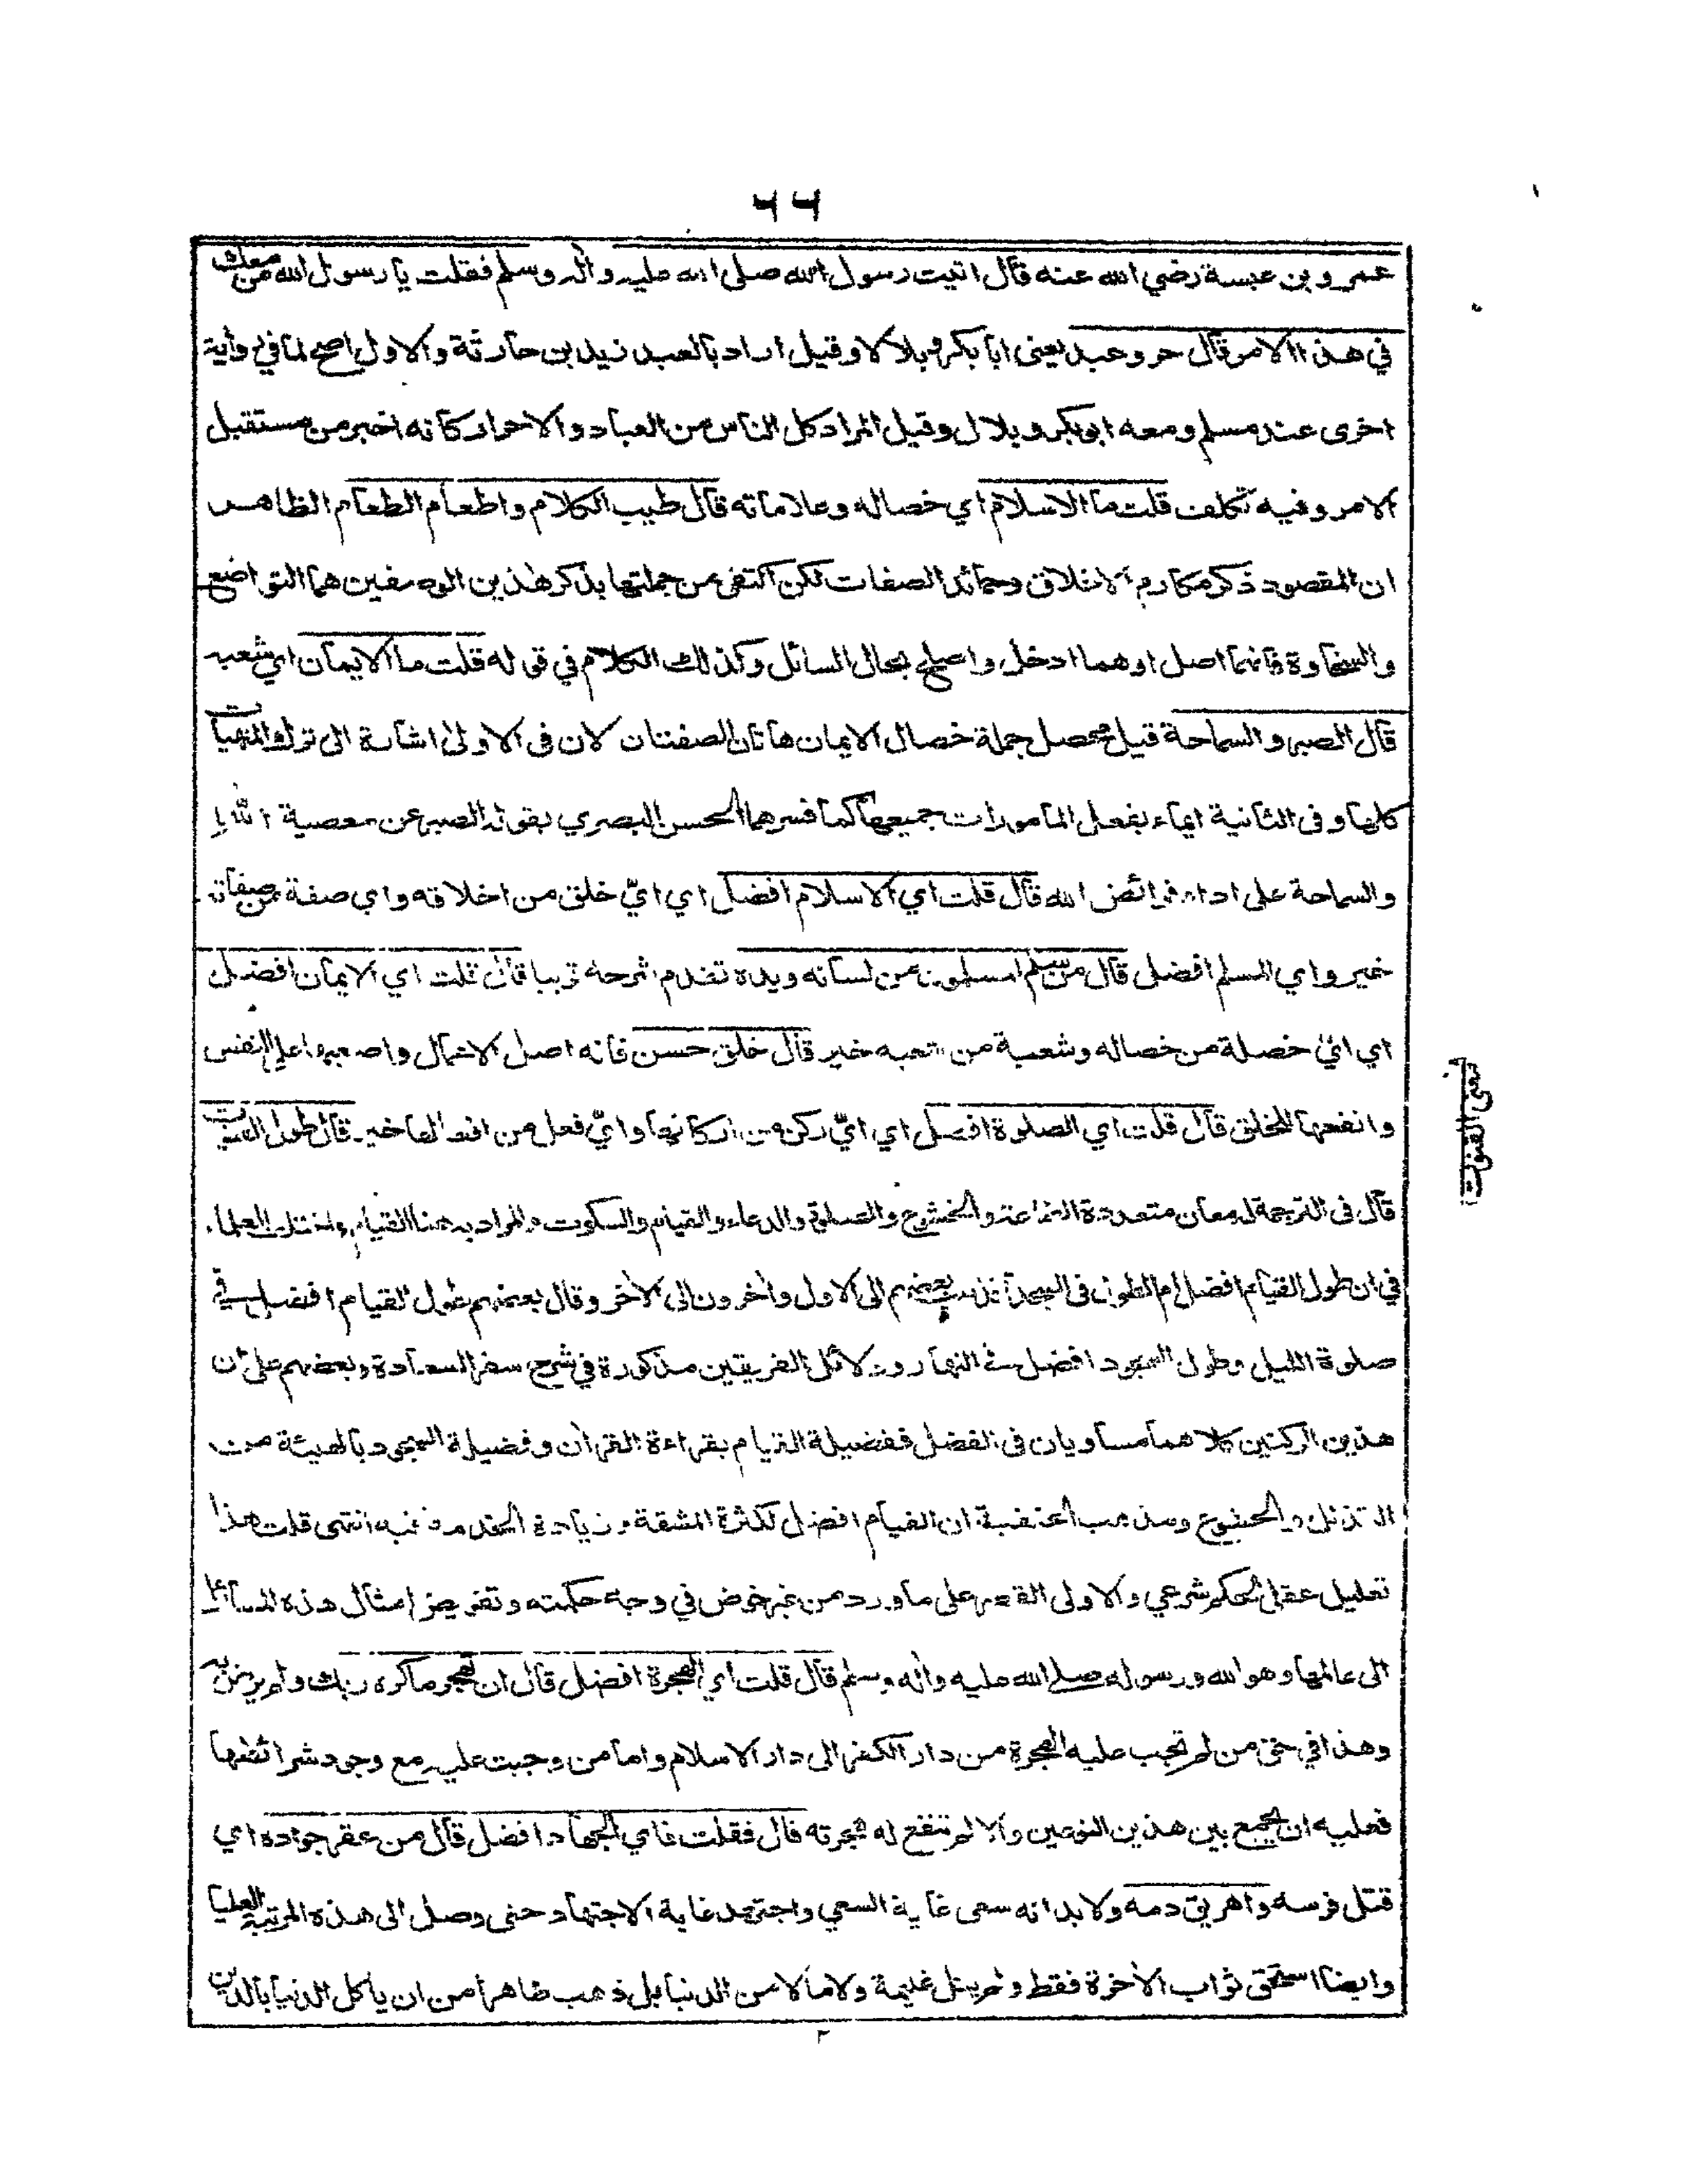 ٦٦
عمرو بن عبسة رضي الله عنه قال اتيت رسول الله صلى الله عليه واله وسلم فقلت يا رسول الله من معك
في هذا الامر قال حر وعبد يعني ابا بكر وبلالا وقيل اراد بالعبد زيد بن حارثة والاول اصح لما في رواية
اخرى عند مسلم ومعه ابو بكر وبلال وقيل المراد كل الناس من العباد والاحرار كانه اخبر من مستقبل
الامر وفيه تكلف قلت ما الاسلام اي خصاله وعلاماته قال طيب الكلام واطعام الطعام الظاهر
ان المقصود ذكر مكارم الاخلاق وحمائد الصفات لكن اكتفى من جملتها بذكر هذين الوصفين هما التواضع
والسخاوة فانهما اصل او هما ادخل واصلح بحال السائل وكذلك الكلام في قوله قلت ما الايمان اي شعبه
قال الصبر والسماحة قيل محصل جملة خصال الايمان هاتان الصفتان لان في الاولى اشارة الى ترك المنهيات
كلها وفي الثانية ايماء بفعل المامورات جميعها كما فسرهما الحسن البصري بقوله الصبر عن معصية الله
والسماحة على اداء فرائض الله قال قلت اي الاسلام افضل اي ايّ خلق من اخلاقه واي صفة من صفاته
خير واي المسلم افضل قال من سلم المسلمون من لسانه ويده تقدم شرحه قريبا قال قلت اي الايمان افضل
اي ايّ خصلة من خصاله وشعبة من شعبه خير قال خلق حسن فانه اصل الاعمال واصعبها على النفس
وانفعها للخلق قال قلت اي الصلوة افضل اي ايّ ركن من اركانها وايّ فعل من افعالها خير قال طول القنوت
قال في الترجمة له معان متعددة الطاعة والخشوع والصلوة والدعاء والقيام والسكوت والمراد به هنا القيام واختلف العلماء
في ان طول القيام افضل ام الطول في السجدة فذهب بعضهم الى الاول واخرون الى الاخر وقال بعضهم طول القيام افضل في
صلوة الليل وطول السجود افضل في النهار ودلائل الفريقين مذكورة في شرح سفر السعادة وبعضهم على ان
هذين الركنين كلاهما مساويان في الفضل ففضيلة القيام بقراءة القران وفضيلة السجود بالهيئة من
التذلل والخضوع ومذهب الحنفية ان القيام افضل لكثرة المشقة وزيادة الخدمة فيه انتهى قلت هذا
تعليل عقلي لحكم شرعي والاولى القصر على ما ورد من غير خوض في وجه حكمته وتفويض امثال هذه المسائل
الى عالمها وهو الله ورسوله صلى الله عليه واله وسلم قال قلت اي الهجرة افضل قال ان تهجر ما كره ربك ولم يرض به
وهذا في حق من لم تجب عليه الهجرة من دار الكفر الى دار الاسلام واما من وجبت عليه مع وجود شرائطها
فعليه ان يجمع بين هذين النوعين والا لم تنفع له هجرته قال فقلت فاي الجهاد افضل قال من عقر جواده اي
قتل فرسه واهريق دمه ولا بد انه سعى غاية السعي واجتهد غاية الاجتهاد حتى وصل الى هذه المرتبة العليا
وايضا استحق ثواب الاخرة فقط ولم ينل غنيمة ولا مالا من الدنيا بل ذهب طاهرا من ان ياكل الدنيا بالدين